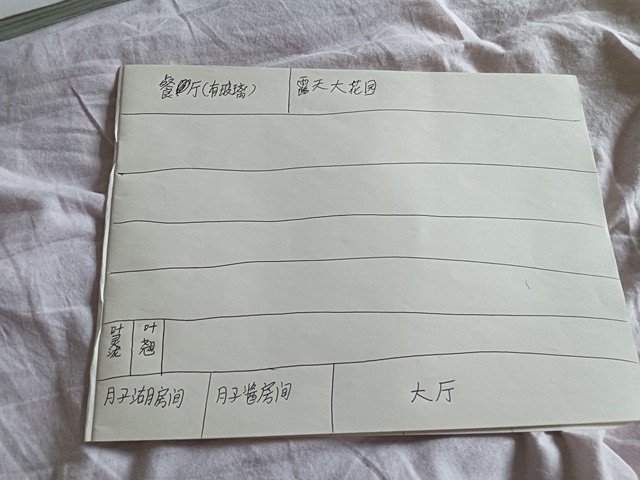 餐厅(有玻璃)
露天大花园
叶灵泷
叶翘
月子湖房间
月子酱房间
大厅